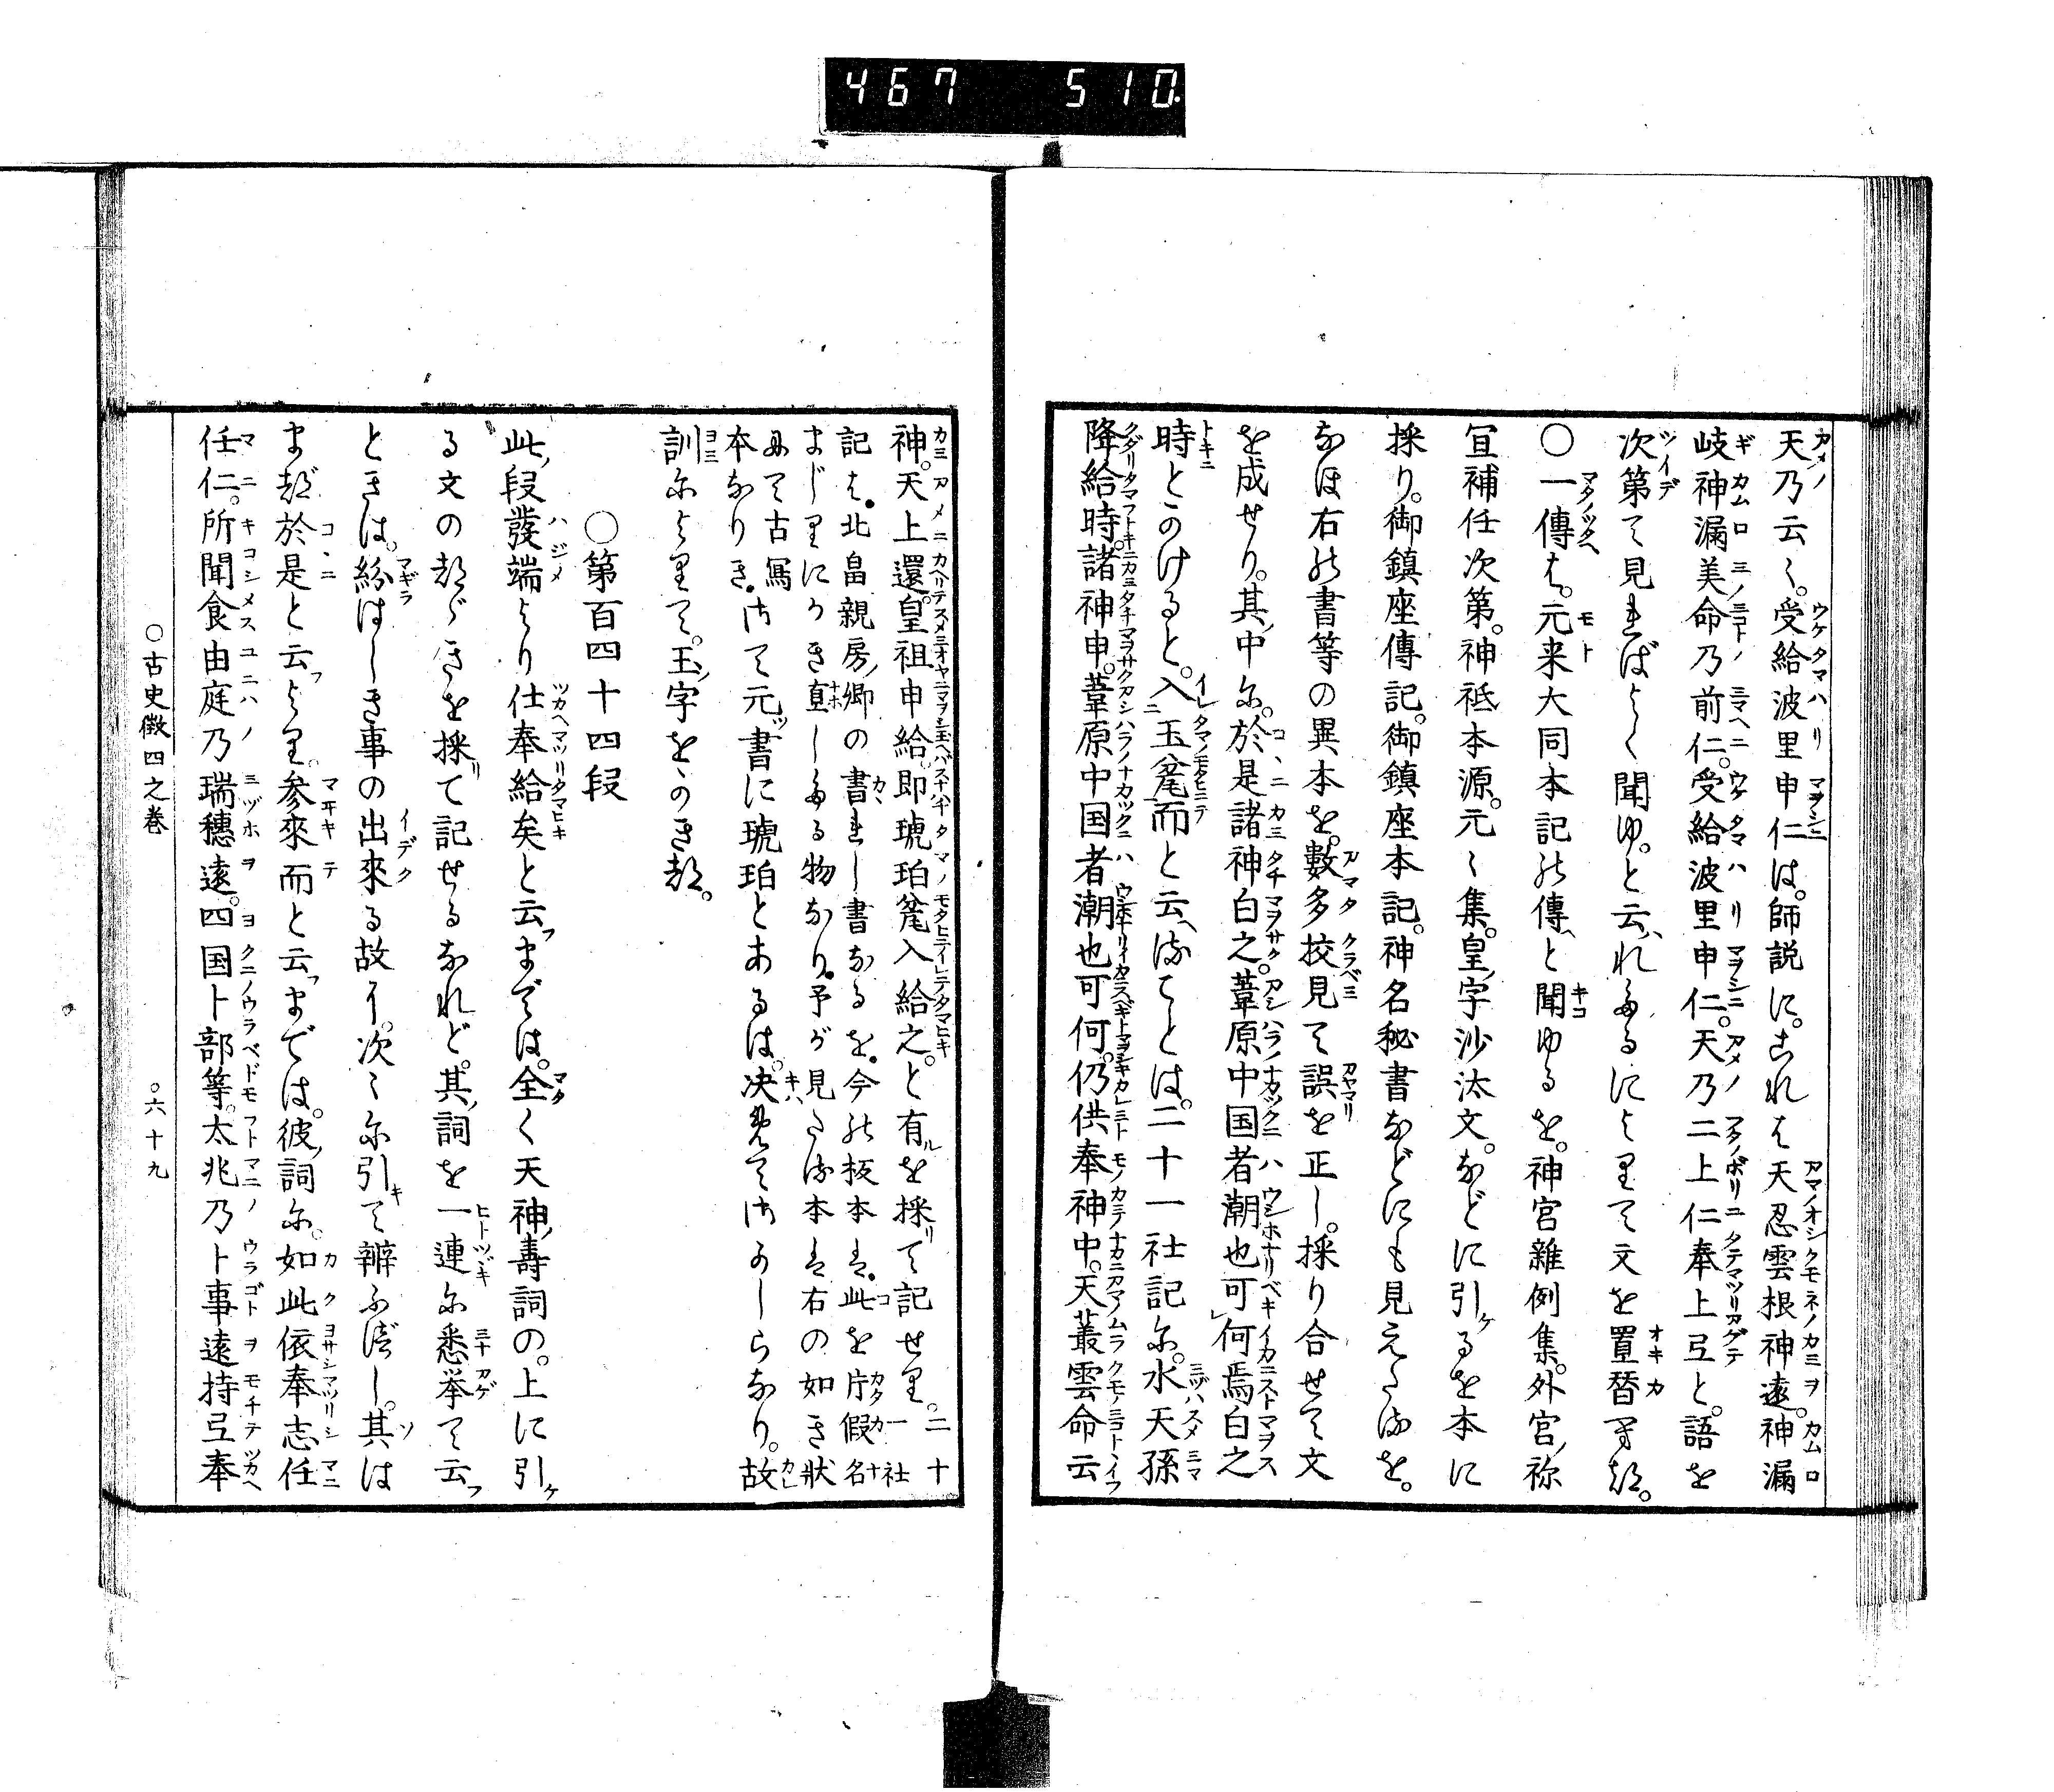 467 510
天乃云〻。受給波里申仁は。師説に。これは天忍雲根神遠。神漏
岐神漏美命乃前仁。受給波里申仁。天乃二上仁奉上弖と。語を
次第て見ればよく聞ゆ。と云れたるによりて文を置替つ。
〇一傳は。元来大同本記の傳と聞ゆるを。神宮雜例集。外宮祢
宜補任次第。神祗本源。元〻集。皇字沙汰文。などに引るを本に
採り。御鎮座傳記。御鎮座本記。神名秘書などにも見えたるを。
なほ右の書等の異本を。數多挍見て誤を正し。採り合せて文
を成せり。其中に。於是諸神白之。葦原中国者潮也可何焉白之
時とかけると。入玉㼸而と云ることは。二十一社記に。水天孫
降給時。諸神申。葦原中国者潮也可何。仍供奉神中。天叢雲命云
神。天上還。皇祖申給。即琥珀㼸入給之。と有を採て記せり。二十一社
記は。北畠親房卿の書れし書なるを。今の板本は。此を片假名
まじりにかき直したる物なり。予が見たる本は右の如き狀
にて古寫
本なりき。さて元書に琥珀とあるは。决めてさかしらなり。故
訓によりて。玉字をかきつ。
〇第百四十四段
此段發端より仕奉給矣と云までは。全く天神壽詞の。上に引
る文のつゞきを採て記せるなれど。其詞を一連に悉挙て云
ときは。紛はしき事の出來る故に。次〻に引て辨ふべし。其は
まづ於是と云より。参來而と云までは。彼詞に。如此依奉志任
任仁。所聞食由庭乃瑞穗遠。四国卜部等。太兆乃卜事遠持弖奉
〇古史徴四之巻 〇六十九